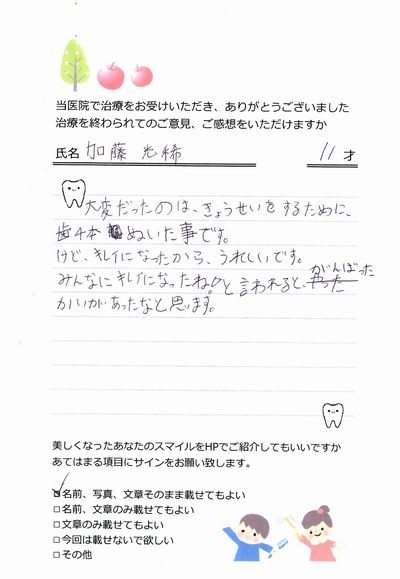 当医院で治療をお受けいただき、ありがとうございました
治療を終わられてのご意見、ご感想をいただけますか
氏名 加藤 光稀 11 才
大変だったのは、きょうせいをするために、
歯4本 ぬいた事です。
けど、キレイになったから、うれしいです。
みんなにキレイになったね♪と言われると、がんばった
かいがあったなと思います。
美しくなったあなたのスマイルをHPでご紹介してもいいですか
あてはまる項目にサインをお願い致します。
☑名前、写真、文章そのまま載せてもよい
□名前、文章のみ載せてもよい
□文章のみ載せてもよい
□今回は載せないで欲しい
□その他